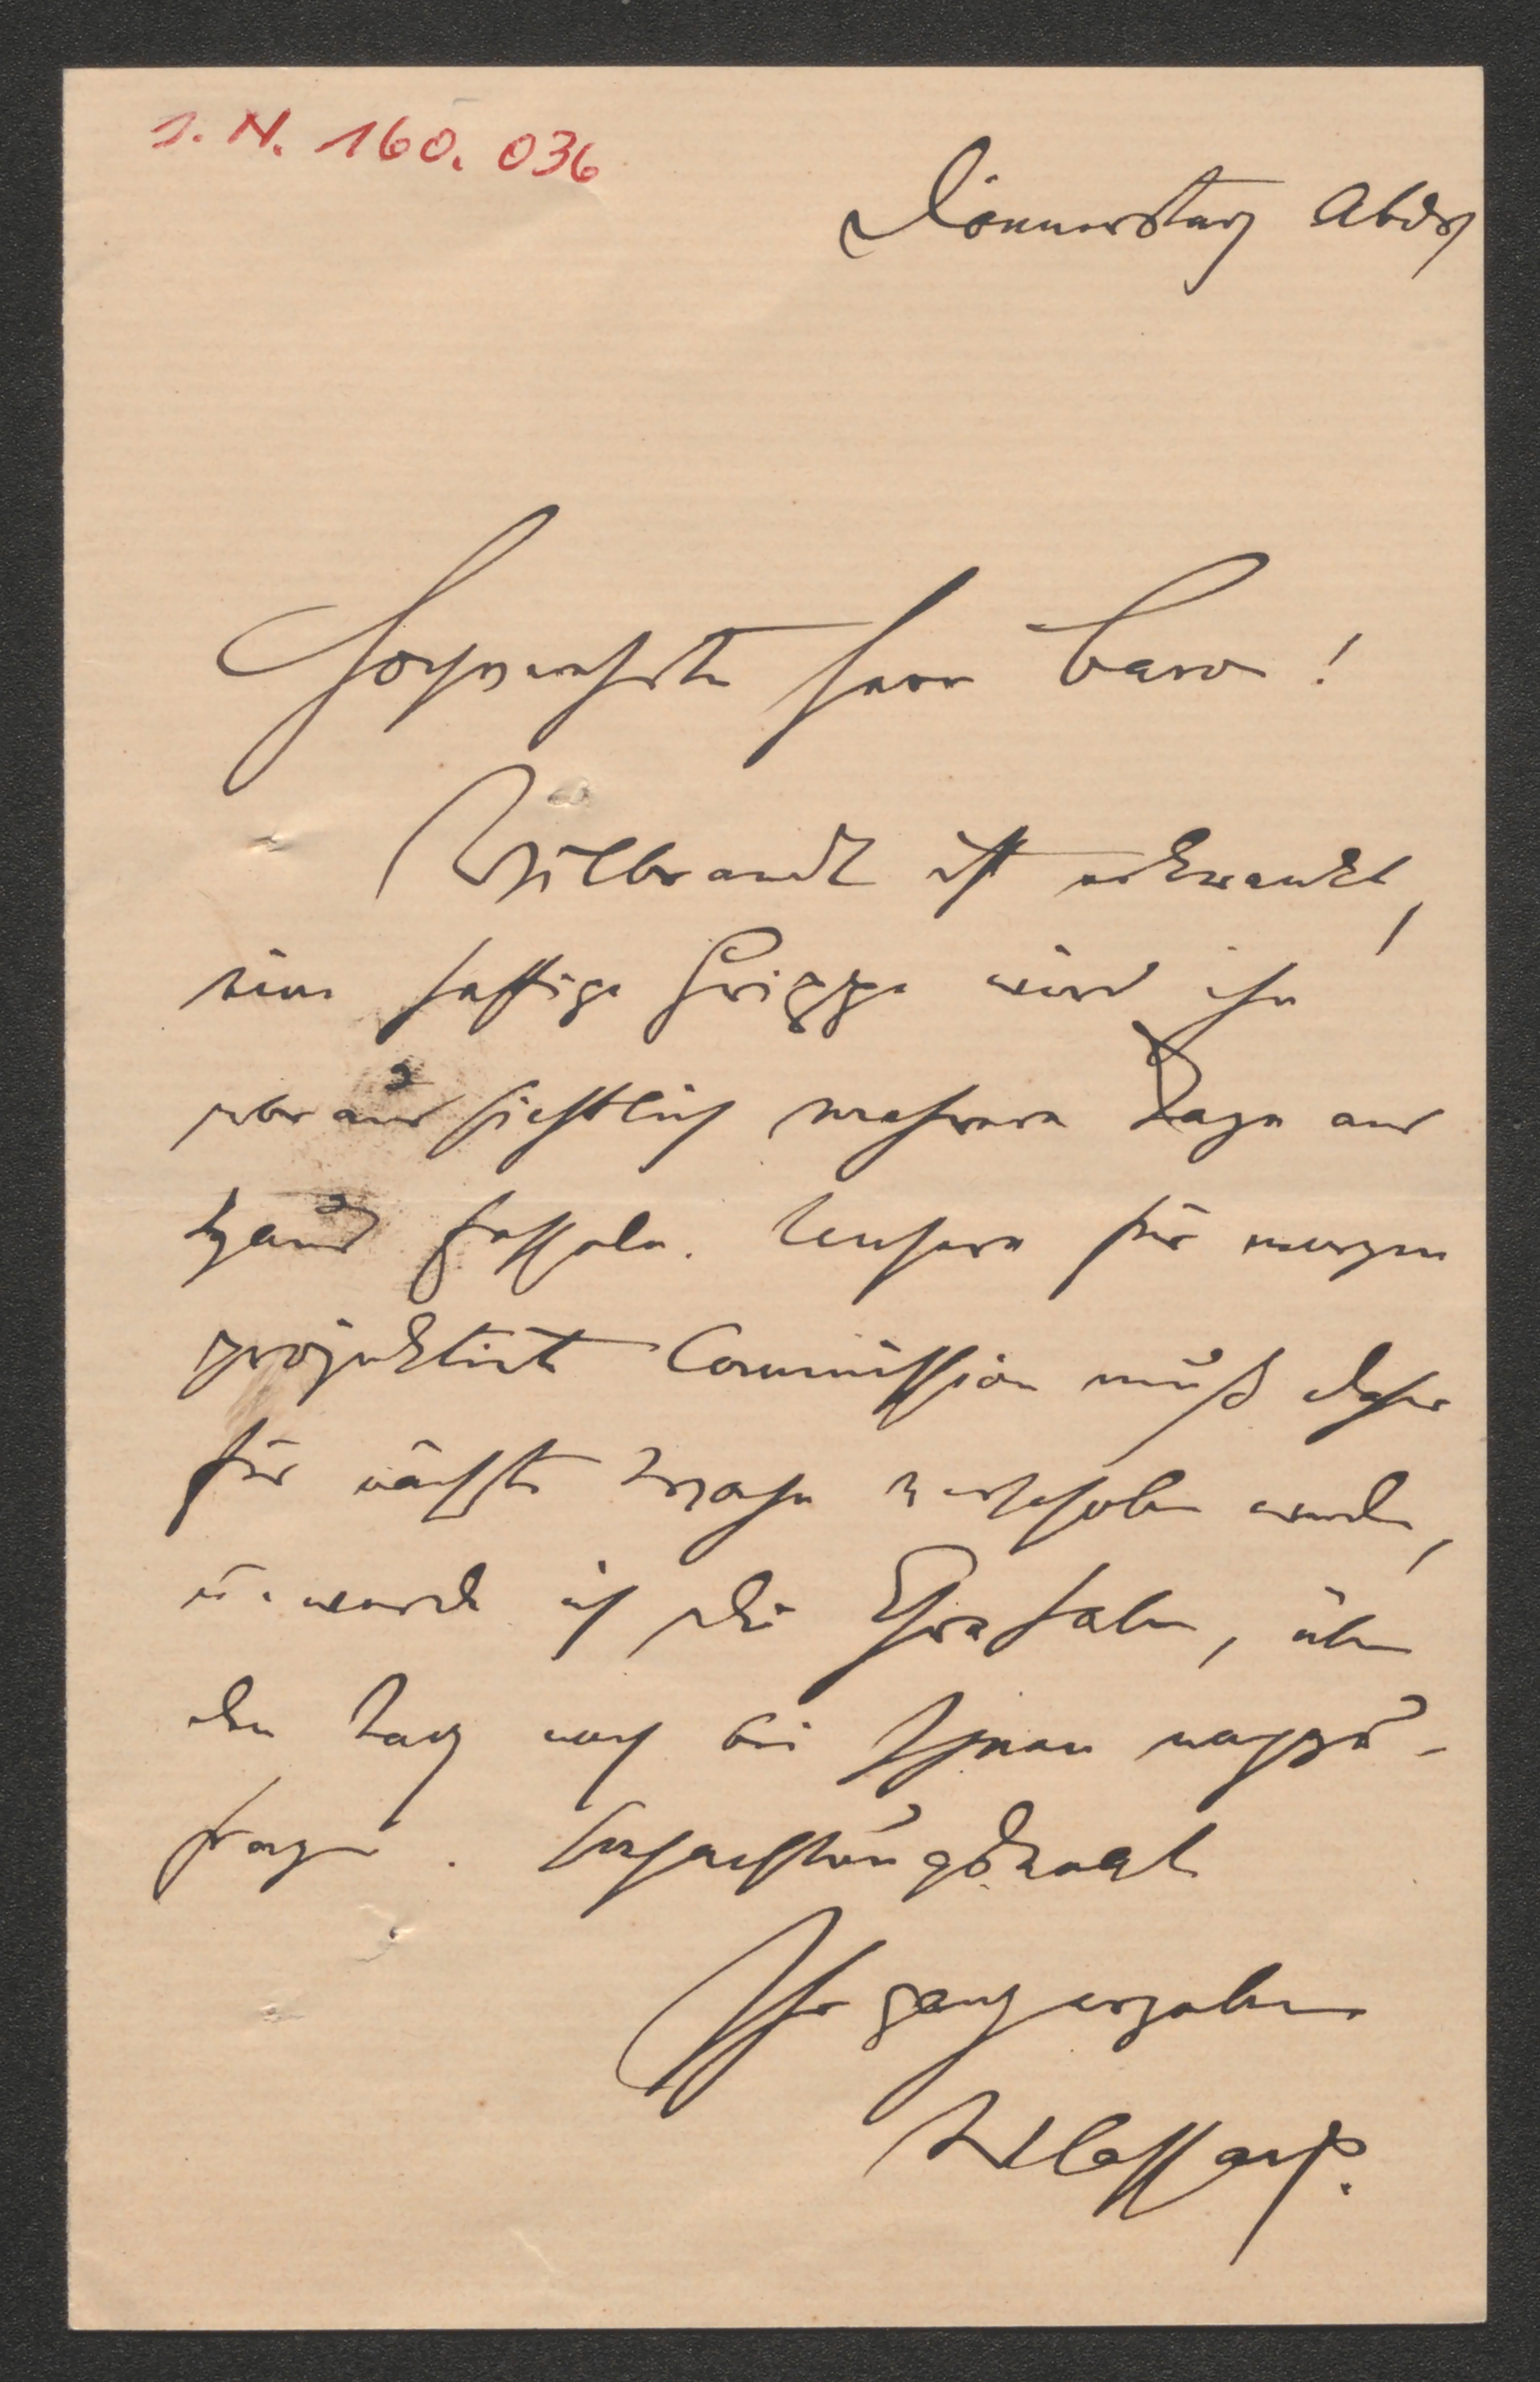 I. N. 160.036
Donnerstag Abds
Hochverehrter Herr Baron!
Wilbrandt ist erkrankt,
eine heftige Grippe wird ihn
voraussichtlich mehrere Tage ans
Haus fesseln. Unsere für morgen
projektirte Commission muß daher
für nächste Woche verschoben werden,
u. werde ich die Ehre haben, über
den Tag noch bei Ihnen nachzu-
fragen. Hochachtungsvoll
Ihr ganz ergebener